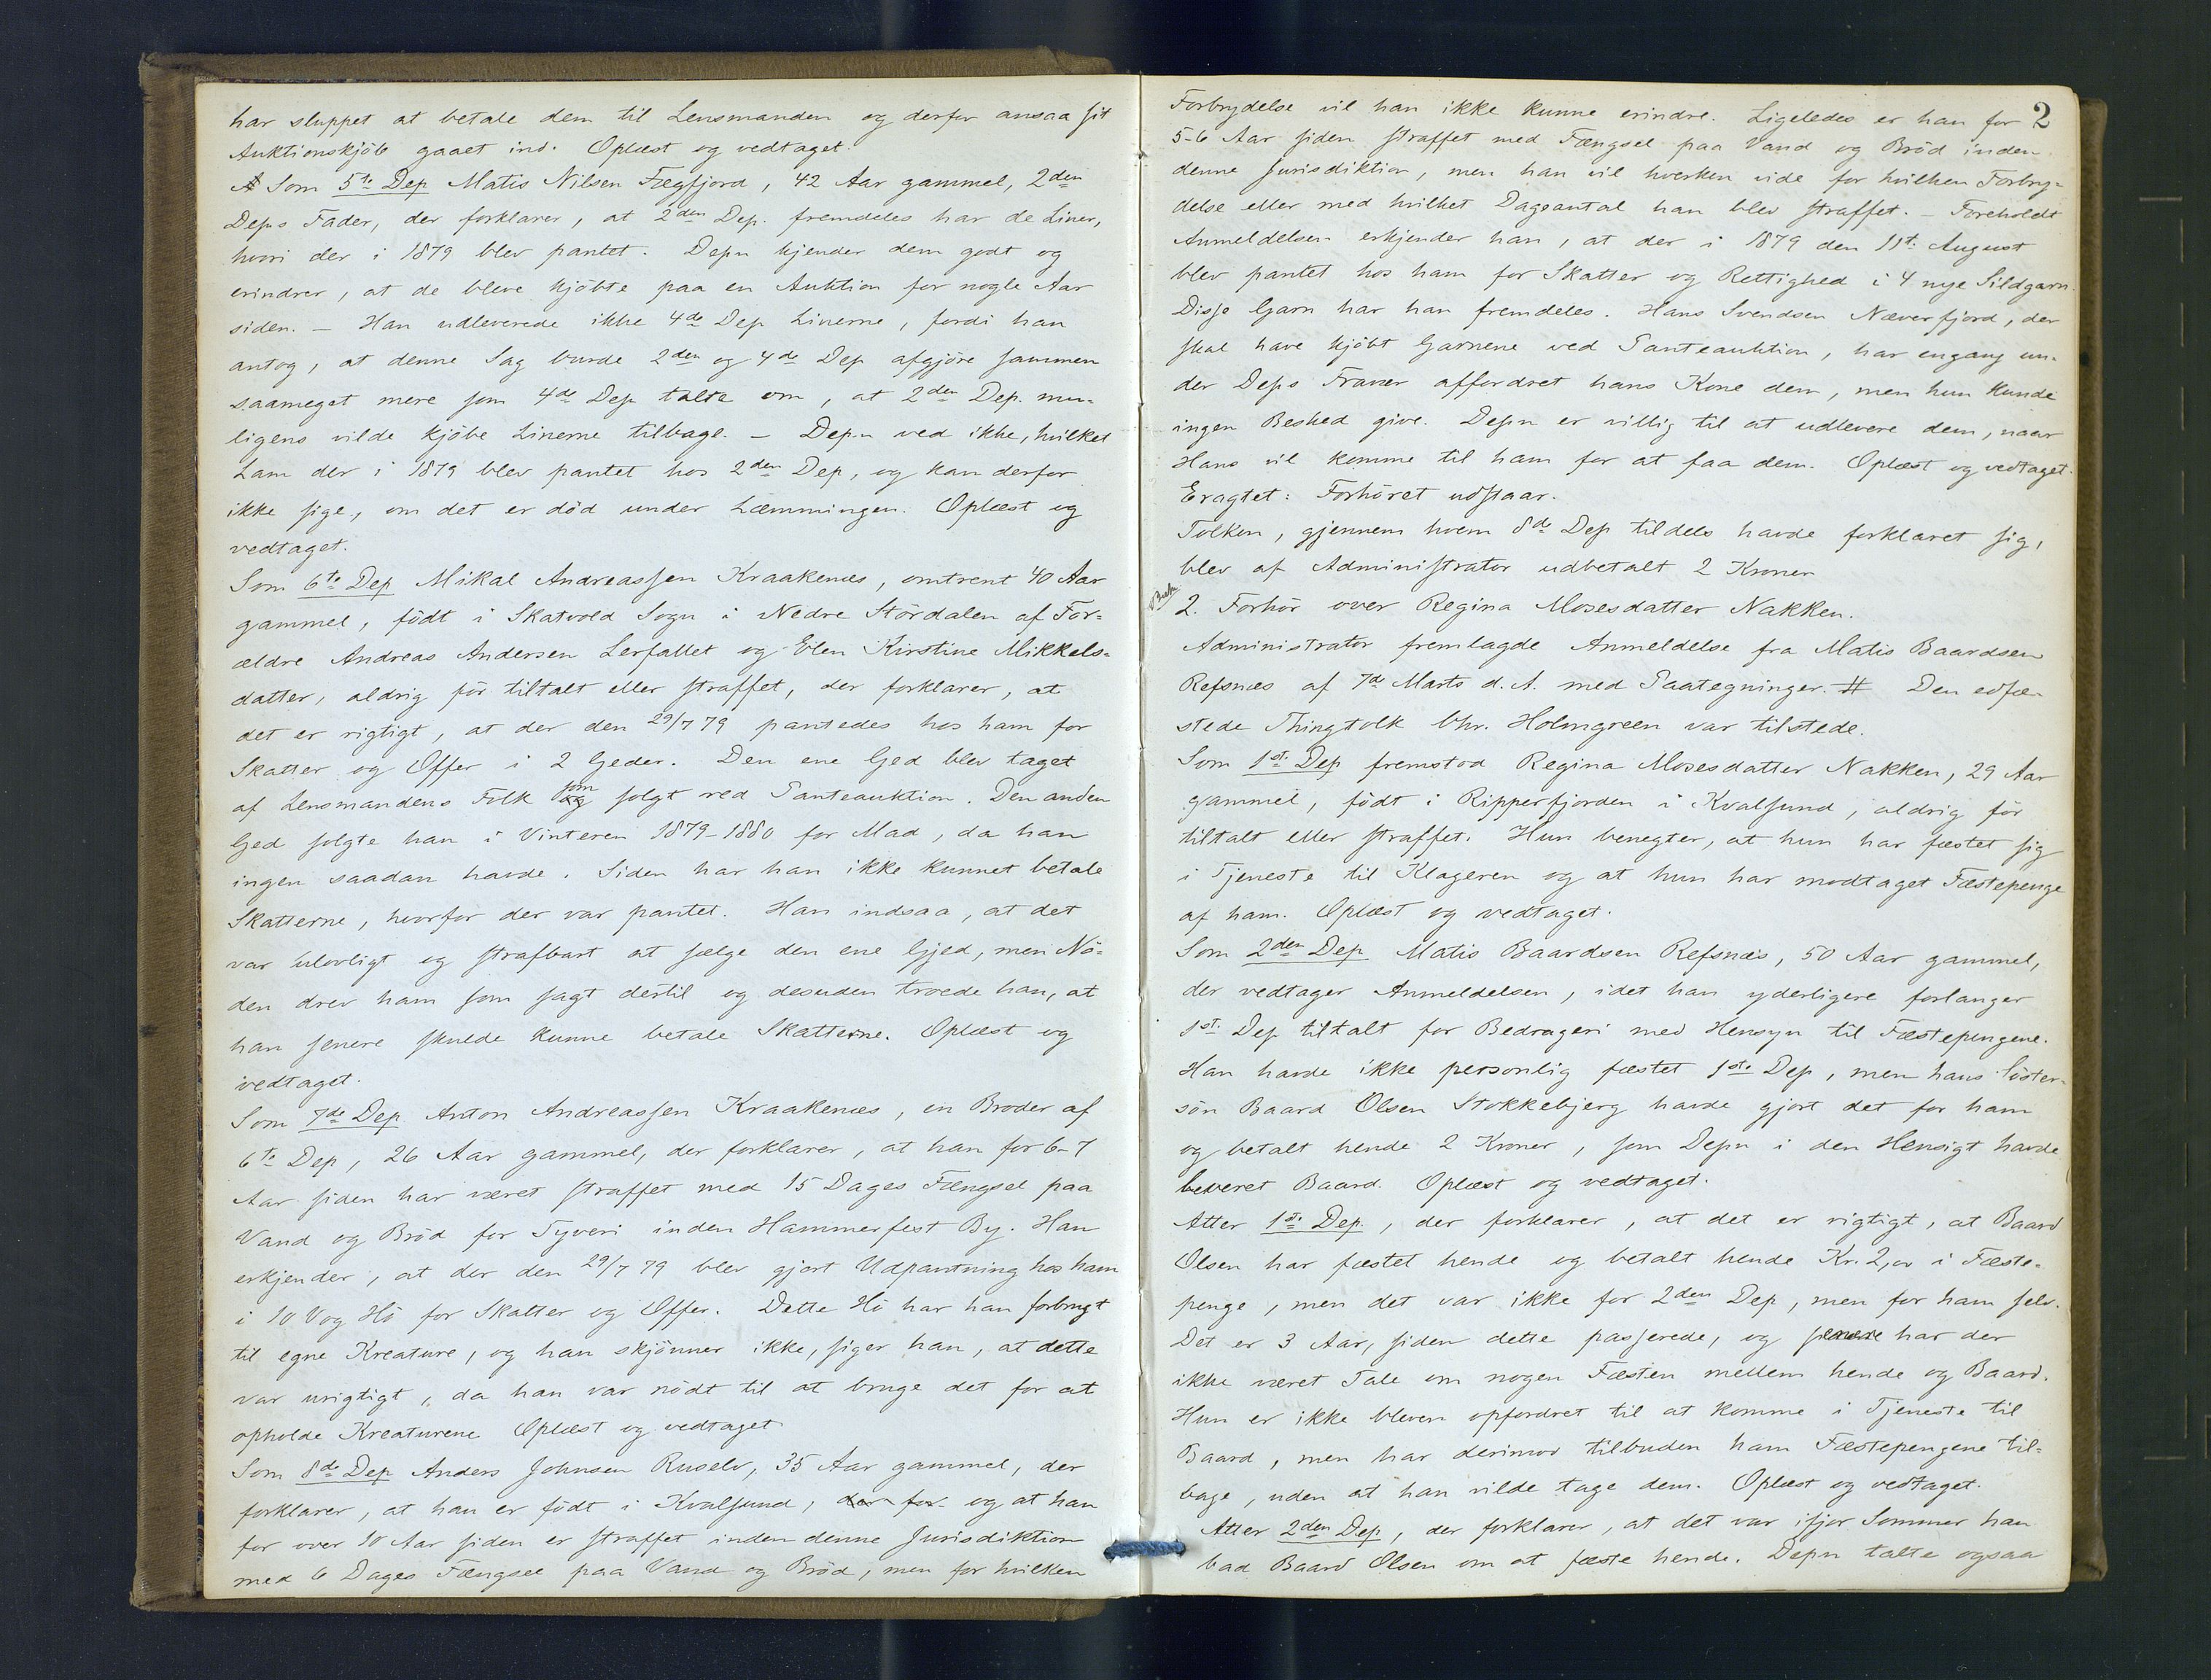 har sluppet at betale dem til Lensmanden og derfor ansaa sit
Auktionskjöb gaaet ind. Oplæst og vedtaget.
A Som 5te Dep Matis Nilsen Fægfjord, 42 Aar gammel, 2den
Deps Fader, der forklarer, at 2den Dep. fremdeles har de Liner,
hvori der i 1879 blev pantet. Depn kjender dem godt og
erindrer, at de bleve kjöbte paa en Auktion for nogle Aar
siden. — Han udleverede ikke 4de Dep Linerne, fordi han
antog, at denne Sag burde 2den og 4de Dep afgjöre sammen
saameget mere som 4de Dep talte om, at 2den Dep. mu-
ligens vilde kjöbe Linerne tilbage. — Depn ved ikke, hvilket
Lam der i 1879 blev pantet hos 2den Dep, og kan derfor
ikke sige, om det er död under Læmmingen. Oplæst og
vedtaget.
Som 6te Dep Mikal Andreassen Kraakenæs, omtrent 40 Aar
gammel, födt i Skatvold Sogn i Nedre Stördalen af For-
ældre Andreas Andersen Lerfallet og Elen Kirstine Mikkels-
datter, aldrig för tiltalt eller straffet, der forklarer, at
det er rigtigt, at der den 29/7 79 pantedes hos ham for
Skatter og Offer i 2 Geder. Den ene Ged blev taget
af Lensmandens Folk og som solgt ved Panteauktion. Den anden
Ged solgte han i Vinteren 1879-1880 for Mad, da han
ingen saadan havde. Siden har han ikke kunnet betale
Skatterne, hvorfor der var pantet. Han indsaa, at det
var ulovligt og strafbart at sælge den ene Gjed, men Nö-
den drev ham som sagt dertil og desuden troede han, at
han senere skulde kunne betale Skatterne. Oplæst og
vedtaget.
Som 7de Dep Anton Andreassen Kraakenæs, en Broder af
6te Dep, 26 Aar gammel, der forklarer, at han for 6-7
Aar siden har været straffet med 15 Dages Fængsel paa
Vand og Bröd for Tyveri inden Hammerfest By. Han
erkjender, at der den 29/7 79 blev gjort Udpantning hos ham
i 10 Vog Hö for Skatter og Offer. Dette Hö har han forbrugt
til egne Kreature, og han skjönner ikke, siger han, at dette
var urigtigt, da han var nödt til at bruge det for at
opholde Kreaturene Oplæst og vedtaget
Som 8de Dep Anders Johnsen Ruselv, 35 Aar gammel, der
forklarer, at han er födt i Kvalsund, der for og at han
for over 10 Aar siden er straffet inden denne Jurisdiktion
med 6 Dages Fængsel paa Vand og Bröd, men for hvilken
2
Forbrydelse vil han ikke kunne erindre. Ligeledes er han for
5-6 Aar siden straffet med Fængsel paa Vand og Bröd inden
denne Jurisdiktion, men han vil hverken vide for hvilken Forbry-
delse eller med hvilket Dageantal han blev straffet. — Foreholdt
Anmeldelsen erkjender han, at der i 1879 den 11te August
blev pantet hos ham for Skatter og Rettighed i 4 nye Sildgarn.
Disse Garn har han fremdeles. Hans Svendsen Næverfjord, der
skal have kjöbt Garnene ved Panteauktion, har engang un-
der Deps Fravær affordret hans Kone dem, men hun kunde
ingen Besked give. Depn er villig til at udlevere dem, naar
Hans vil komme til ham for at faa dem. Oplæst og vedtaget.
Eragtet: Forhöret udstaar.
Tolken, gjennem hvem 8de Dep tildels havde forklaret sig,
blev af Administrator udbetalt 2 Kroner
2. Forhör over Regina Mosesdatter Nakken.
Administrator fremlagde Anmeldelse fra Matis Baardsen
Refsnæs af 7de Marts d. A. med Paategninger. # Den edfæ-
stede Thingtolk Chr. Holmgreen var tilstede.
Som 1ste Dep fremstod Regina Mosesdatter Nakken, 29 Aar
gammel, födt i Ripperfjorden i Kvalsund, aldrig för
tiltalt eller straffet. Hun benegter, at hun har fæstet sig
i Tjeneste til Klageren og at hun har modtaget Fæstepenge
af ham. Oplæst og vedtaget.
Som 2den Dep Matis Baardsen Refsnæs, 50 Aar gammel,
der vedtager Anmeldelsen, idet han yderligere forlanger
1ste Dep tiltalt for Bedrageri med Hensyn til Fæstepengene.
Han havde ikke personlig fæstet 1ste Dep, men hans Söster-
sön Baard Olsen Stokkebjerg havde gjort det for ham
og betalt hende 2 Kroner, som Depn i den Hensigt havde
leveret Baard. Oplæst og vedtaget.
Atter 1ste Dep, der forklarer, at det er rigtigt, at Baard
Olsen har fæstet hende og betalt hende Kr. 2,00 i Fæste-
penge, men det var ikke for 2den Dep, men for ham selv.
Det er 3 Aar, siden dette passerede, og senere har der
ikke været Tale om nogen Fæsten mellem hende og Baard.
Hun er ikke bleven opfordret til at komme i Tjeneste til
Baard, men har derimod tilbuden ham Fæstepengene til-
bage, uden at han vilde tage dem. Oplæst og vedtaget.
Atter 2den Dep, der forklarer, at det var ifjor Sommer han
bad Baard Olsen om at fæste hende. Depn talte ogsaa